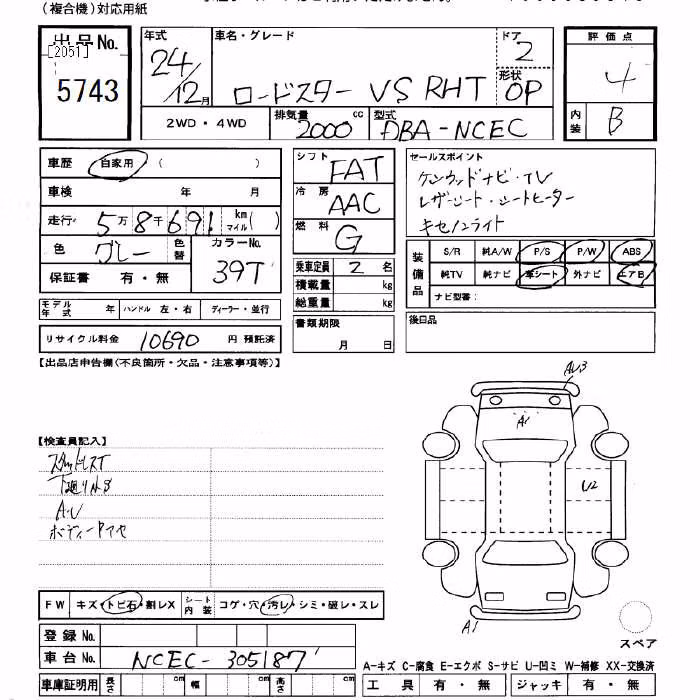 (複合機)対応用紙
出品No.
[2051]
5743
年式
24/12月
車名・グレード
ロードスター VS RHT
ドア
2
形状
OP
2WD・4WD
排気量
2000 cc
型式
DBA-NCEC
評価点
4
内装
B
車歴 自家用 ( )
車検 年 月
走行 5万8千691 km マイル ( )
色 グレー 色替
カラーNo.
39T
保証書 有・無
モデル年式 年 ハンドル 左・右 ディーラー・並行
リサイクル料金 10690 円 預託済
シフト FAT
冷房 AAC
燃料 G
乗車定員 2 名
積載量 kg
総重量 kg
書類期限
月 日
セールスポイント
ケンウッドナビ・TV
レザーシート・シートヒーター
キセノンライト
装備品
S/R 純A/W P/S P/W ABS
純TV 純ナビ 革シート 外ナビ エアB
ナビ型番:
後日品
【出品店申告欄(不良箇所・欠品・注意事項等)】
【検査員記入】
A・U
A1
U2
A1
FW キズ・トビ石・割レX シート内装 コゲ・穴・汚レ・シミ・破レ・スレ
登録 No.
車台 No. NCEC-305187
車庫証明用 長さ cm 幅 cm 高さ cm
スペア
A-キズ C-腐食 E-エクボ S-サビ U-凹ミ W-補修 XX-交換済
工具 有・無 ジャッキ 有・無